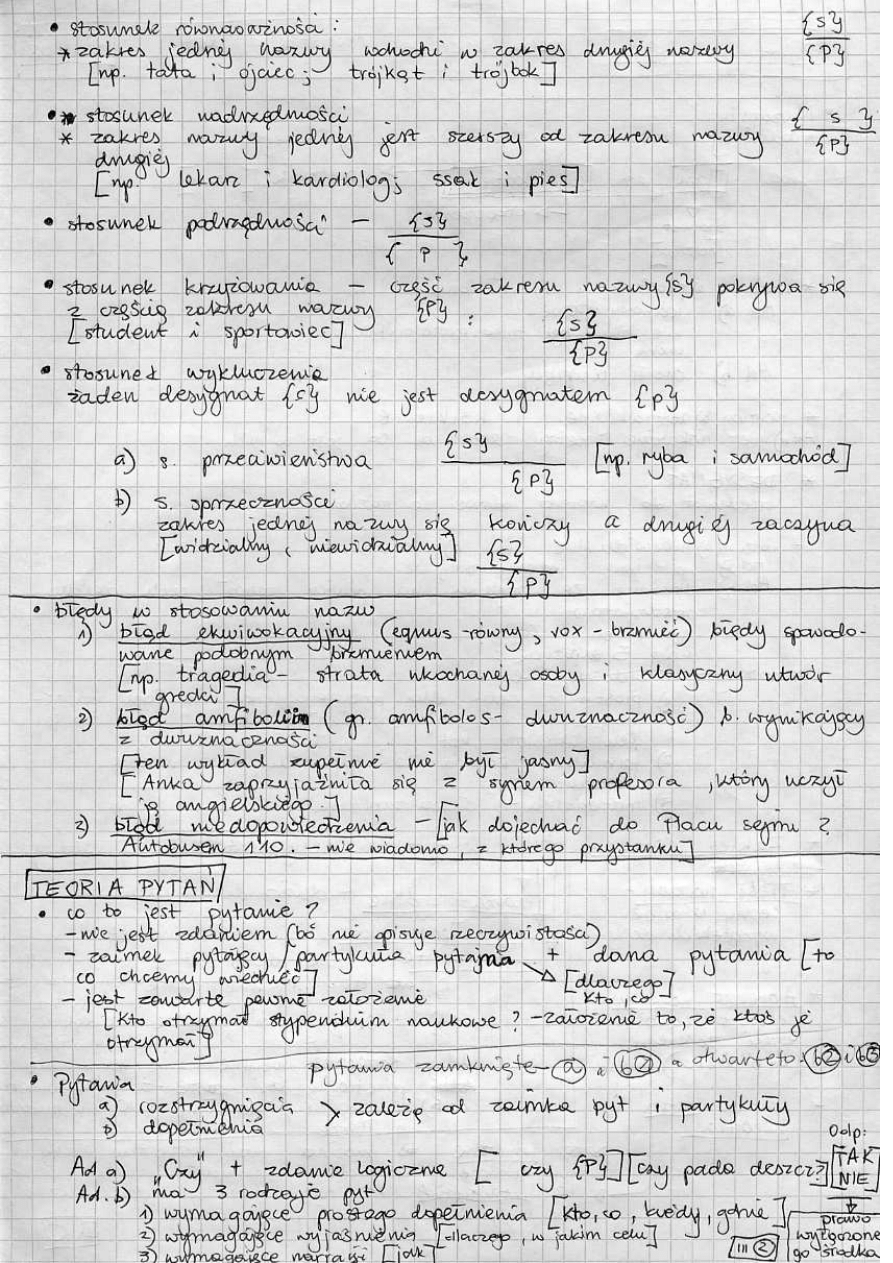 • stosunek równoważności:
{s}
{P}
* zakres jednej nazwy wchodzi w zakres drugiej nazwy
[np. tata i ojciec; trójkąt i trójbok]
• stosunek nadrzędności
* zakres nazwy jednej jest szerszy od zakresu nazwy
drugiej
{ s }
{P}
[np. lekarz i kardiolog; ssak i pies]
• stosunek podrzędności – {s}
{ P }
• stosunek krzyżowania – część zakresu nazwy {s} pokrywa się
z częścią zakresu nazwy {P} :
{s}
{P}
[student i sportowiec]
• stosunek wykluczenia
żaden desygnat {s} nie jest desygnatem {p}
a) s. przeciwieństwa {s} [np. ryba i samochód]
{P}
b) s. sprzeczności
zakres jednej nazwy się kończy a drugiej zaczyna
[widzialny, niewidzialny] {s}
{P}
• błędy w stosowaniu nazw
1) błąd ekwiwokacyjny (equus - równy, vox - brzmieć) błędy spowodo-
wane podobnym brzmieniem
[np. tragedia - strata ukochanej osoby i klasyczny utwór
grecki]
2) błąd amfibolii (gr. amfibolos - dwuznaczność) b. wynikający
z dwuznaczności
[ten wykład zupełnie nie był jasny]
[Anka zaprzyjaźniła się z synem profesora, który uczył
ją angielskiego.]
3) błąd niedopowiedzenia – [jak dojechać do Placu sejmu?
Autobusem 110. – nie wiadomo, z którego przystanku]
TEORIA PYTAŃ
• co to jest pytanie?
- nie jest zdaniem (bo nie opisuje rzeczywistości)
- zaimek pytający / partykuła pytajna + dana pytania [to
co chcemy wiedzieć] [dlaczego]
kto, co
- jest zawarte pewne założenie
[Kto otrzymał stypendium naukowe? - założenie to, że ktoś je
otrzymał]
pytania zamknięte - a i b1 a otwarte to: b2 i b3
• Pytania
a) rozstrzygnięcia > zależą od zaimka pyt i partykuły
b) dopełnienia
Odp:
Ad a) „Czy" + zdanie logiczne [ czy {P}] [czy pada deszcz?] TAK
NIE
Ad. b) ma 3 rodzaje pyt
1) wymagające prostego dopełnienia [kto, co, kiedy, gdzie]
2) wymagające wyjaśnienia [dlaczego, w jakim celu]
3) wymagające narracji [jak]
prawo
wyłączone
go środka
III 2